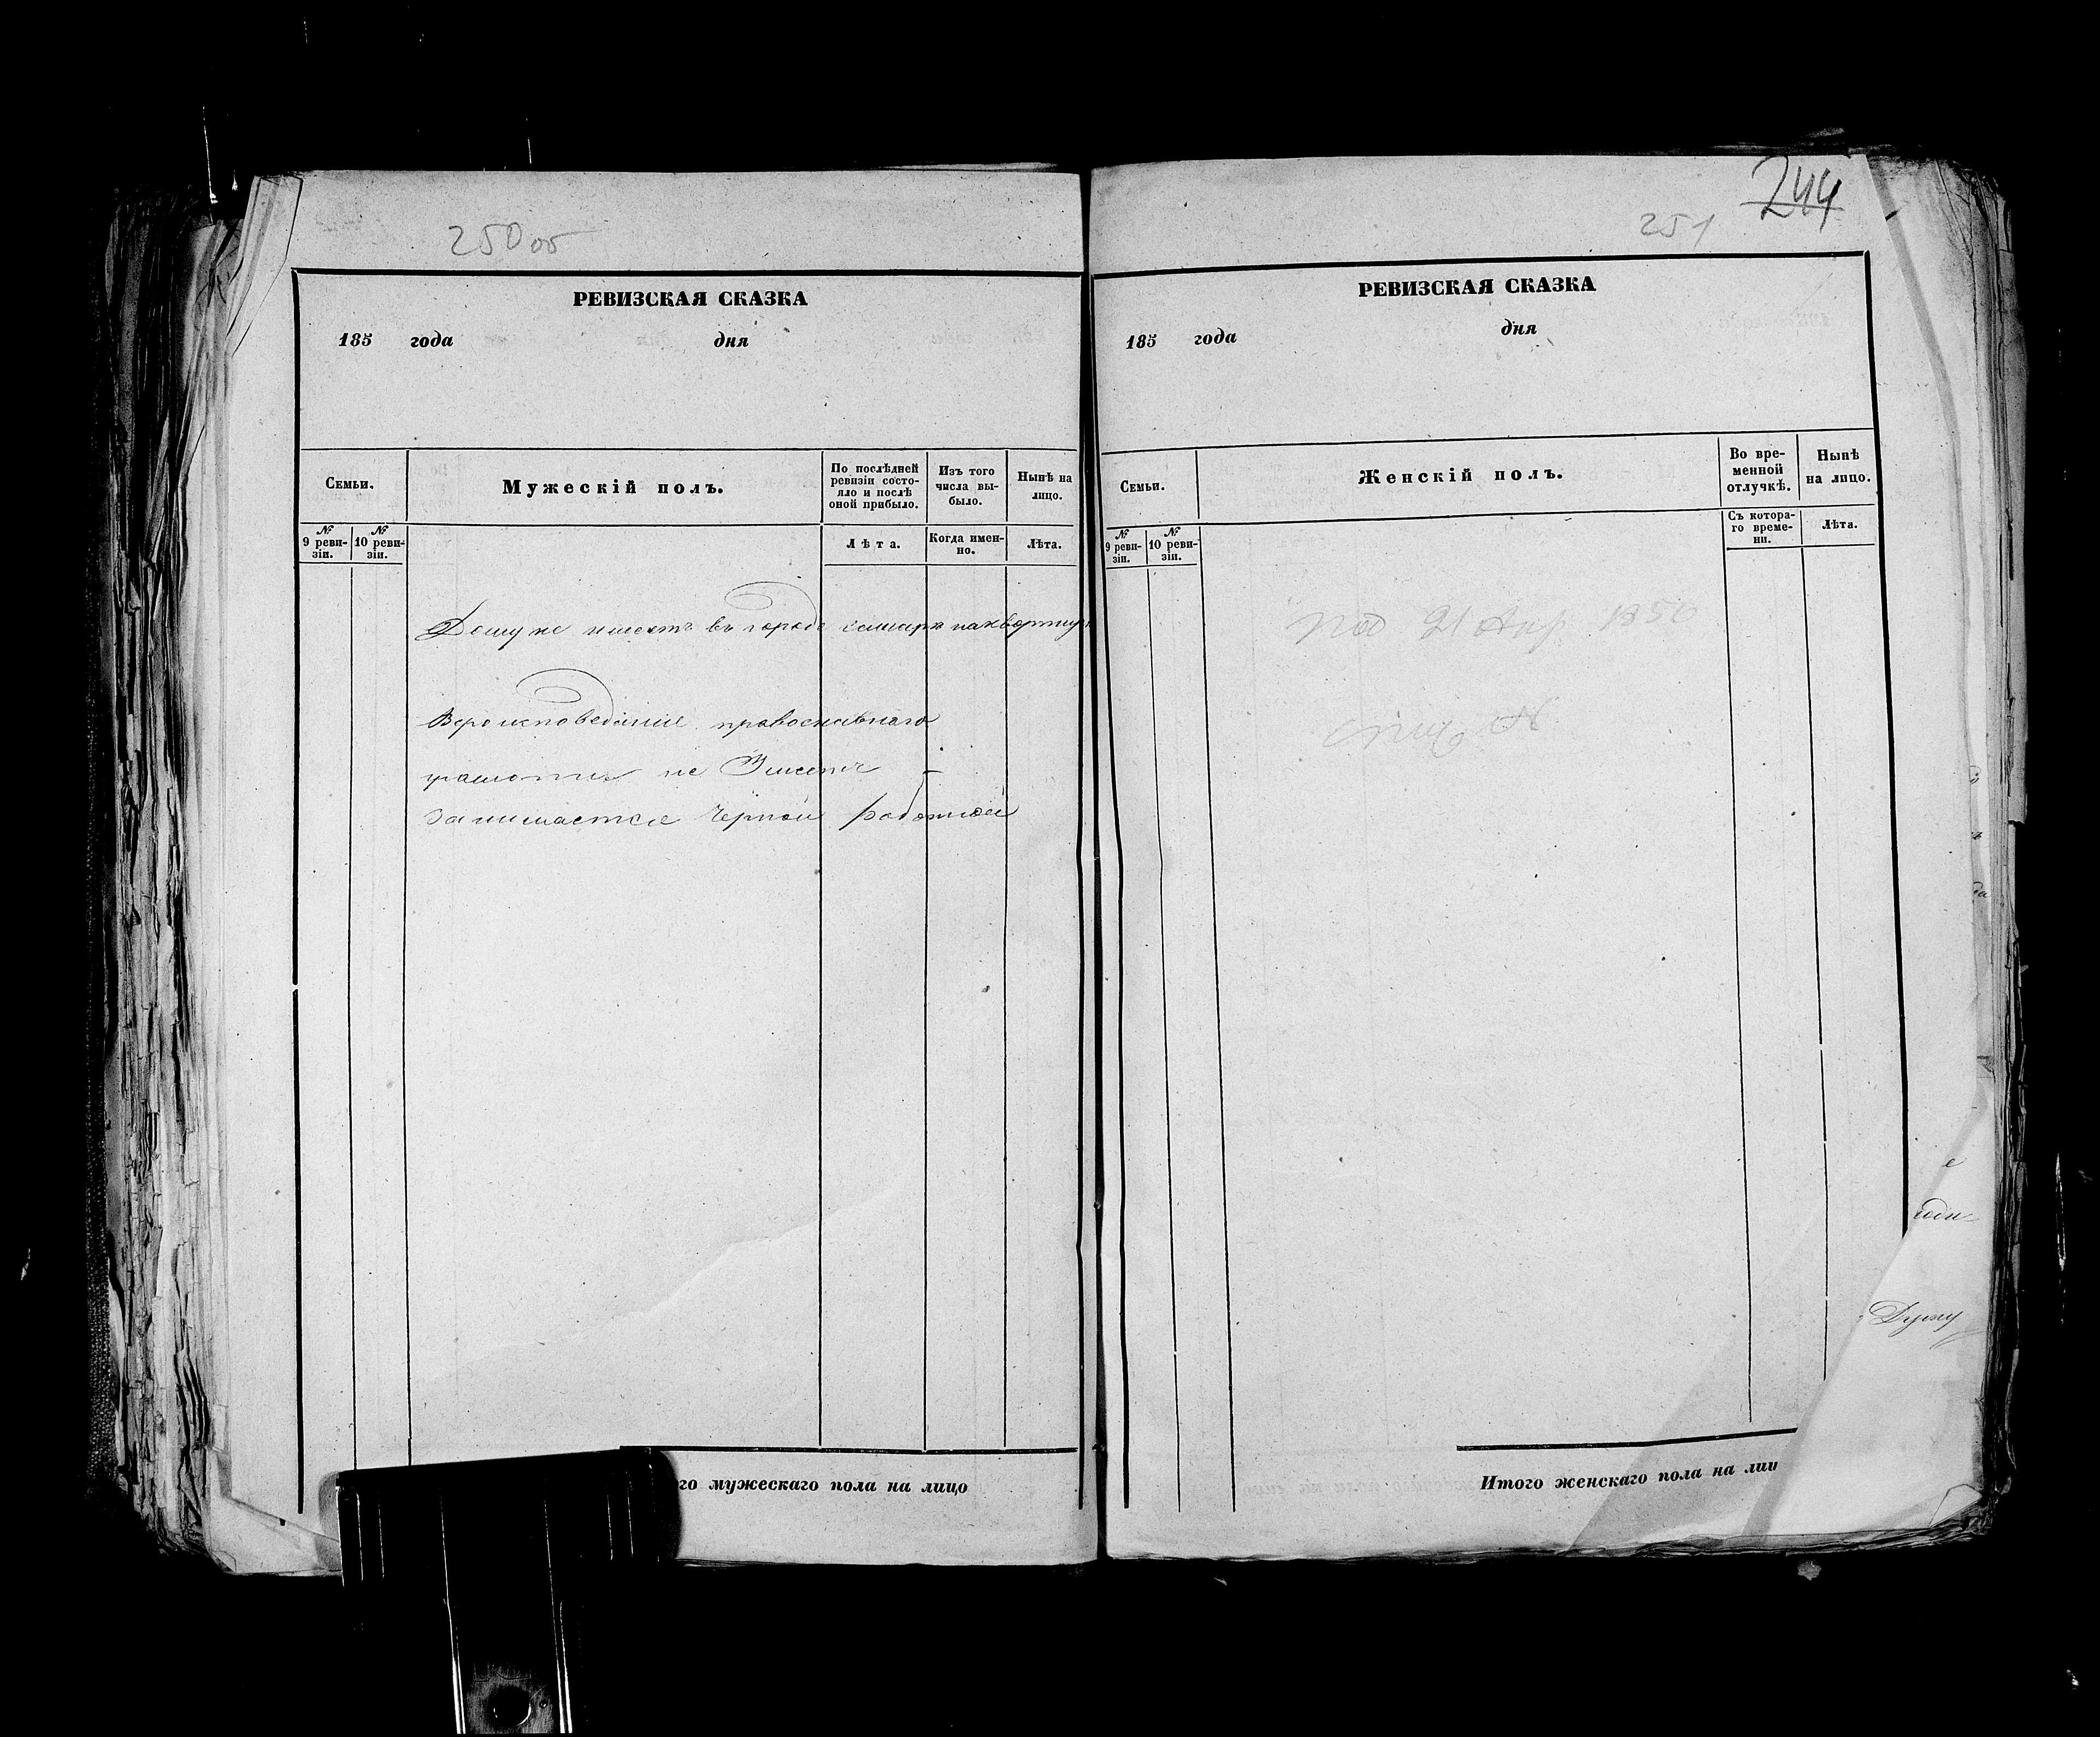 250об
РЕВИЗСКАЯ СКАЗКА
185 года дня
Семьи.
Мужескій полъ.
По послѣдней ревизіи состояло и послѣ оной прибыло.
Изъ того числа выбыло.
Нынѣ на лицо.
№ 9 ревизіи.
№ 10 ревизіи.
Лѣта.
Когда именно.
Лѣта.
Дому не имеетъ въ городе самаре на квортир
Вероисповедание православнаго
грамоты не Знаетъ
занимается Черной работой
го мужескаго пола на лицо
244
251
РЕВИЗСКАЯ СКАЗКА
185 года дня
Семьи.
Женскій полъ.
Во временной отлучкѣ.
Нынѣ на лицо.
№ 9 ревизіи.
№ 10 ревизіи.
Съ котораго времени.
Лѣта.
под 21 Апр. 185
Итого женскаго пола на лиц